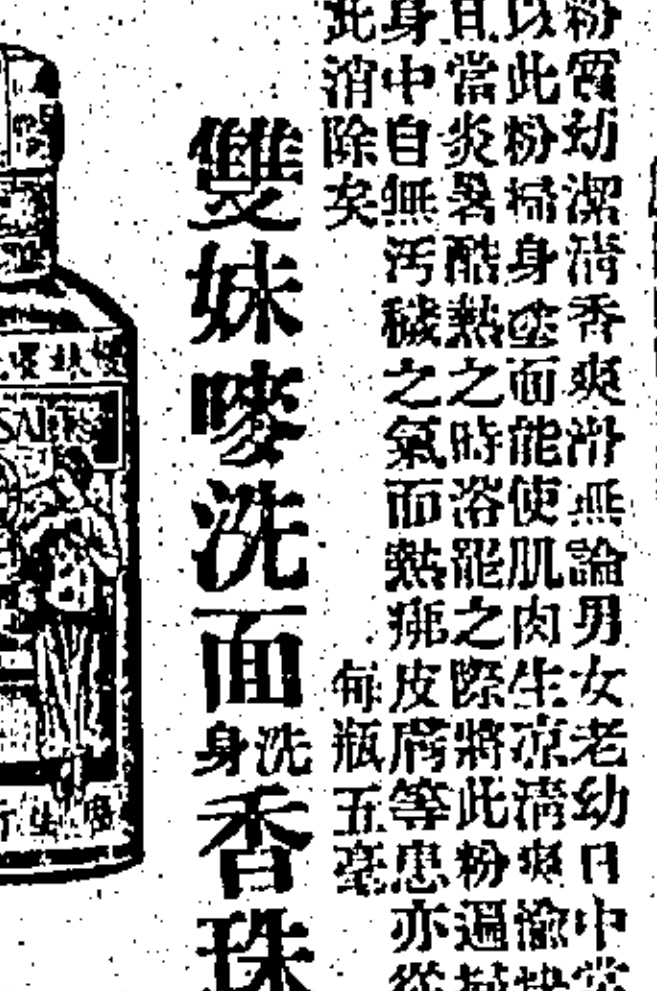 粉質幼潔清香爽滑無論男女老幼日中常
以此粉掃身塗面能使肌肉生凉清爽愉快
且當炎暑酷熱之時浴罷之際將此粉遍掃
身中自無汚穢之氣而熱痱皮膚等患亦從
此消除矣
每瓶五毫
雙妹嘜洗面洗身香珠